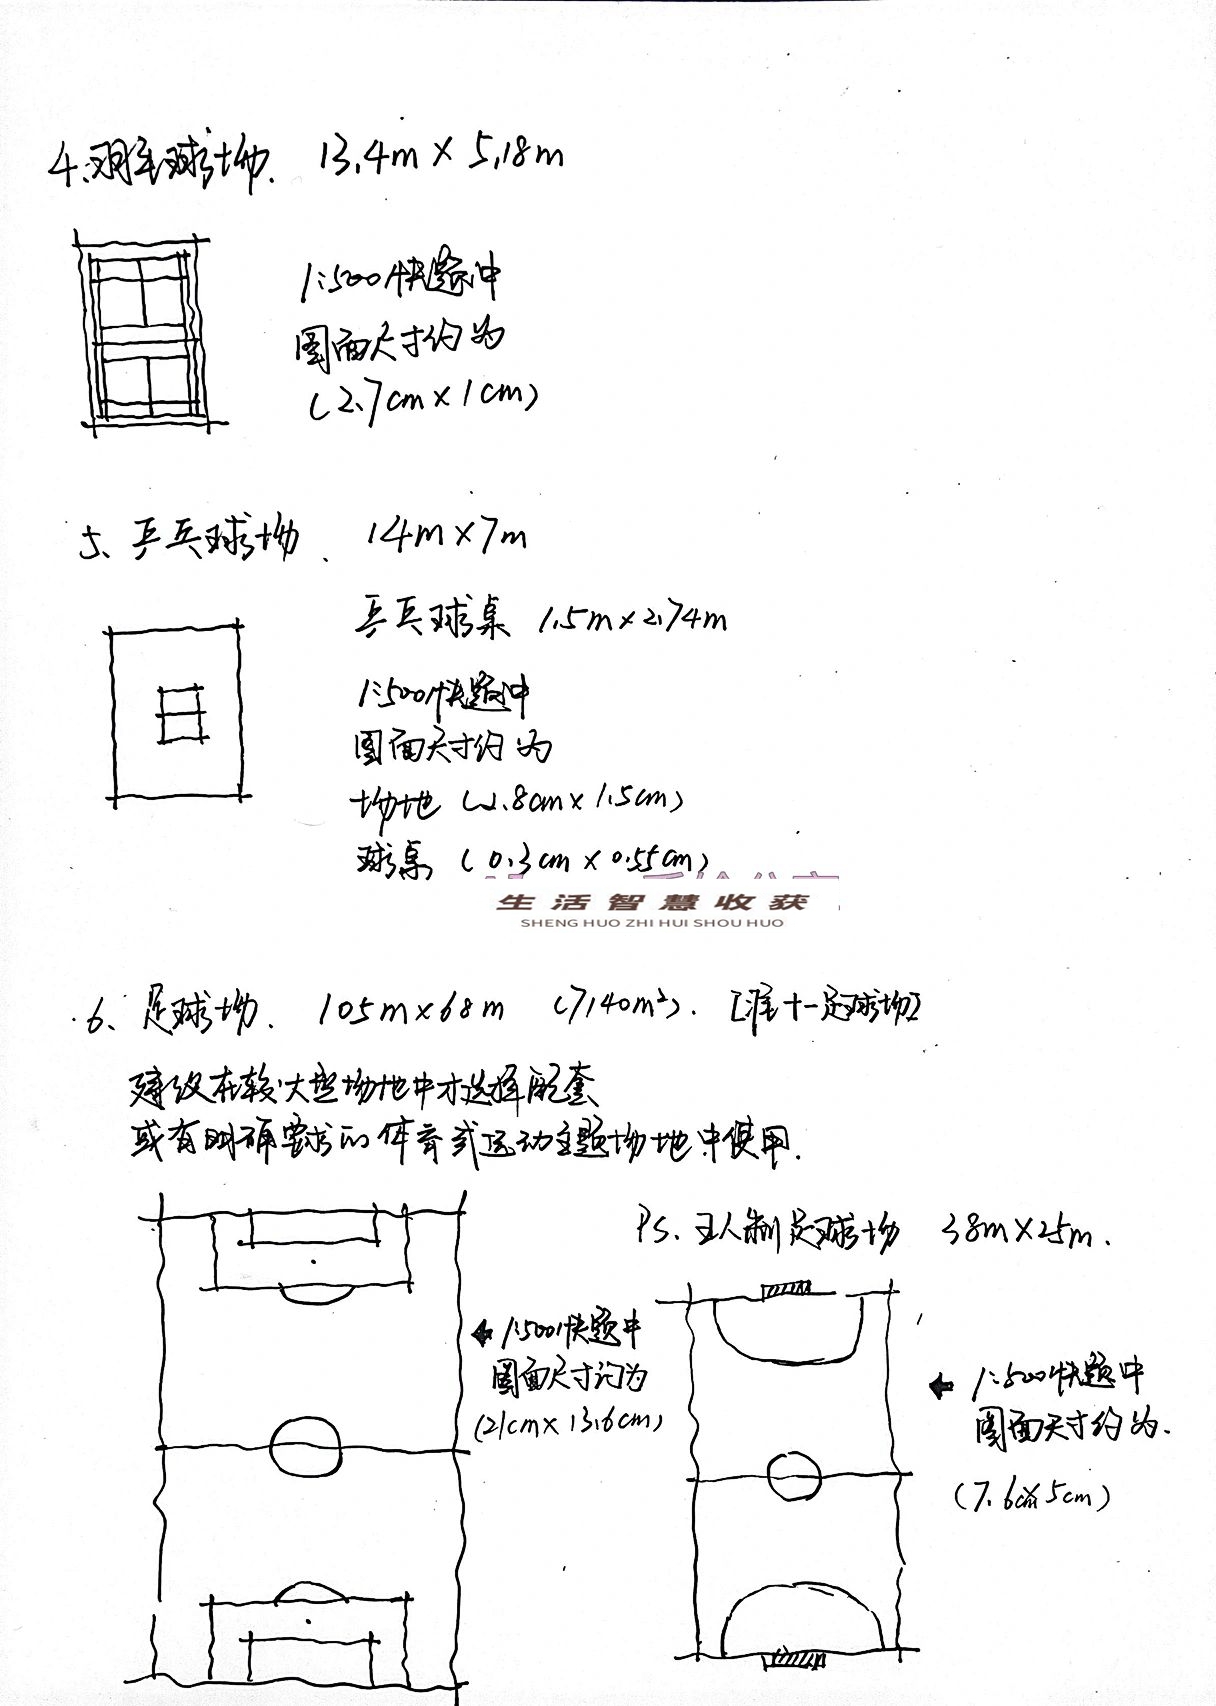 4.羽毛球场. 13.4m×5.18m
1:500快题中
图面尺寸约为
(2.7cm×1cm)
5、乒乓球场. 14m×7m
乒乓球桌 1.5m×2.74m
1:500快题中
图面尺寸约为
场地(2.8cm×1.5cm)
球桌(0.3cm×0.55cm)
生活智慧收获
SHENG HUO ZHI HUI SHOU HUO
6、足球场. 105m×68m (7140m²). [准十一足球场]
建议在较大型场地中才选择配套
或有明确要求的体育或运动主题场地中使用.
PS. 五人制足球场 38m×25m.
1:500快题中
图面尺寸约为
(21cm×13.6cm)
1:500快题中
图面尺寸约为.
(7.6cm×5cm)